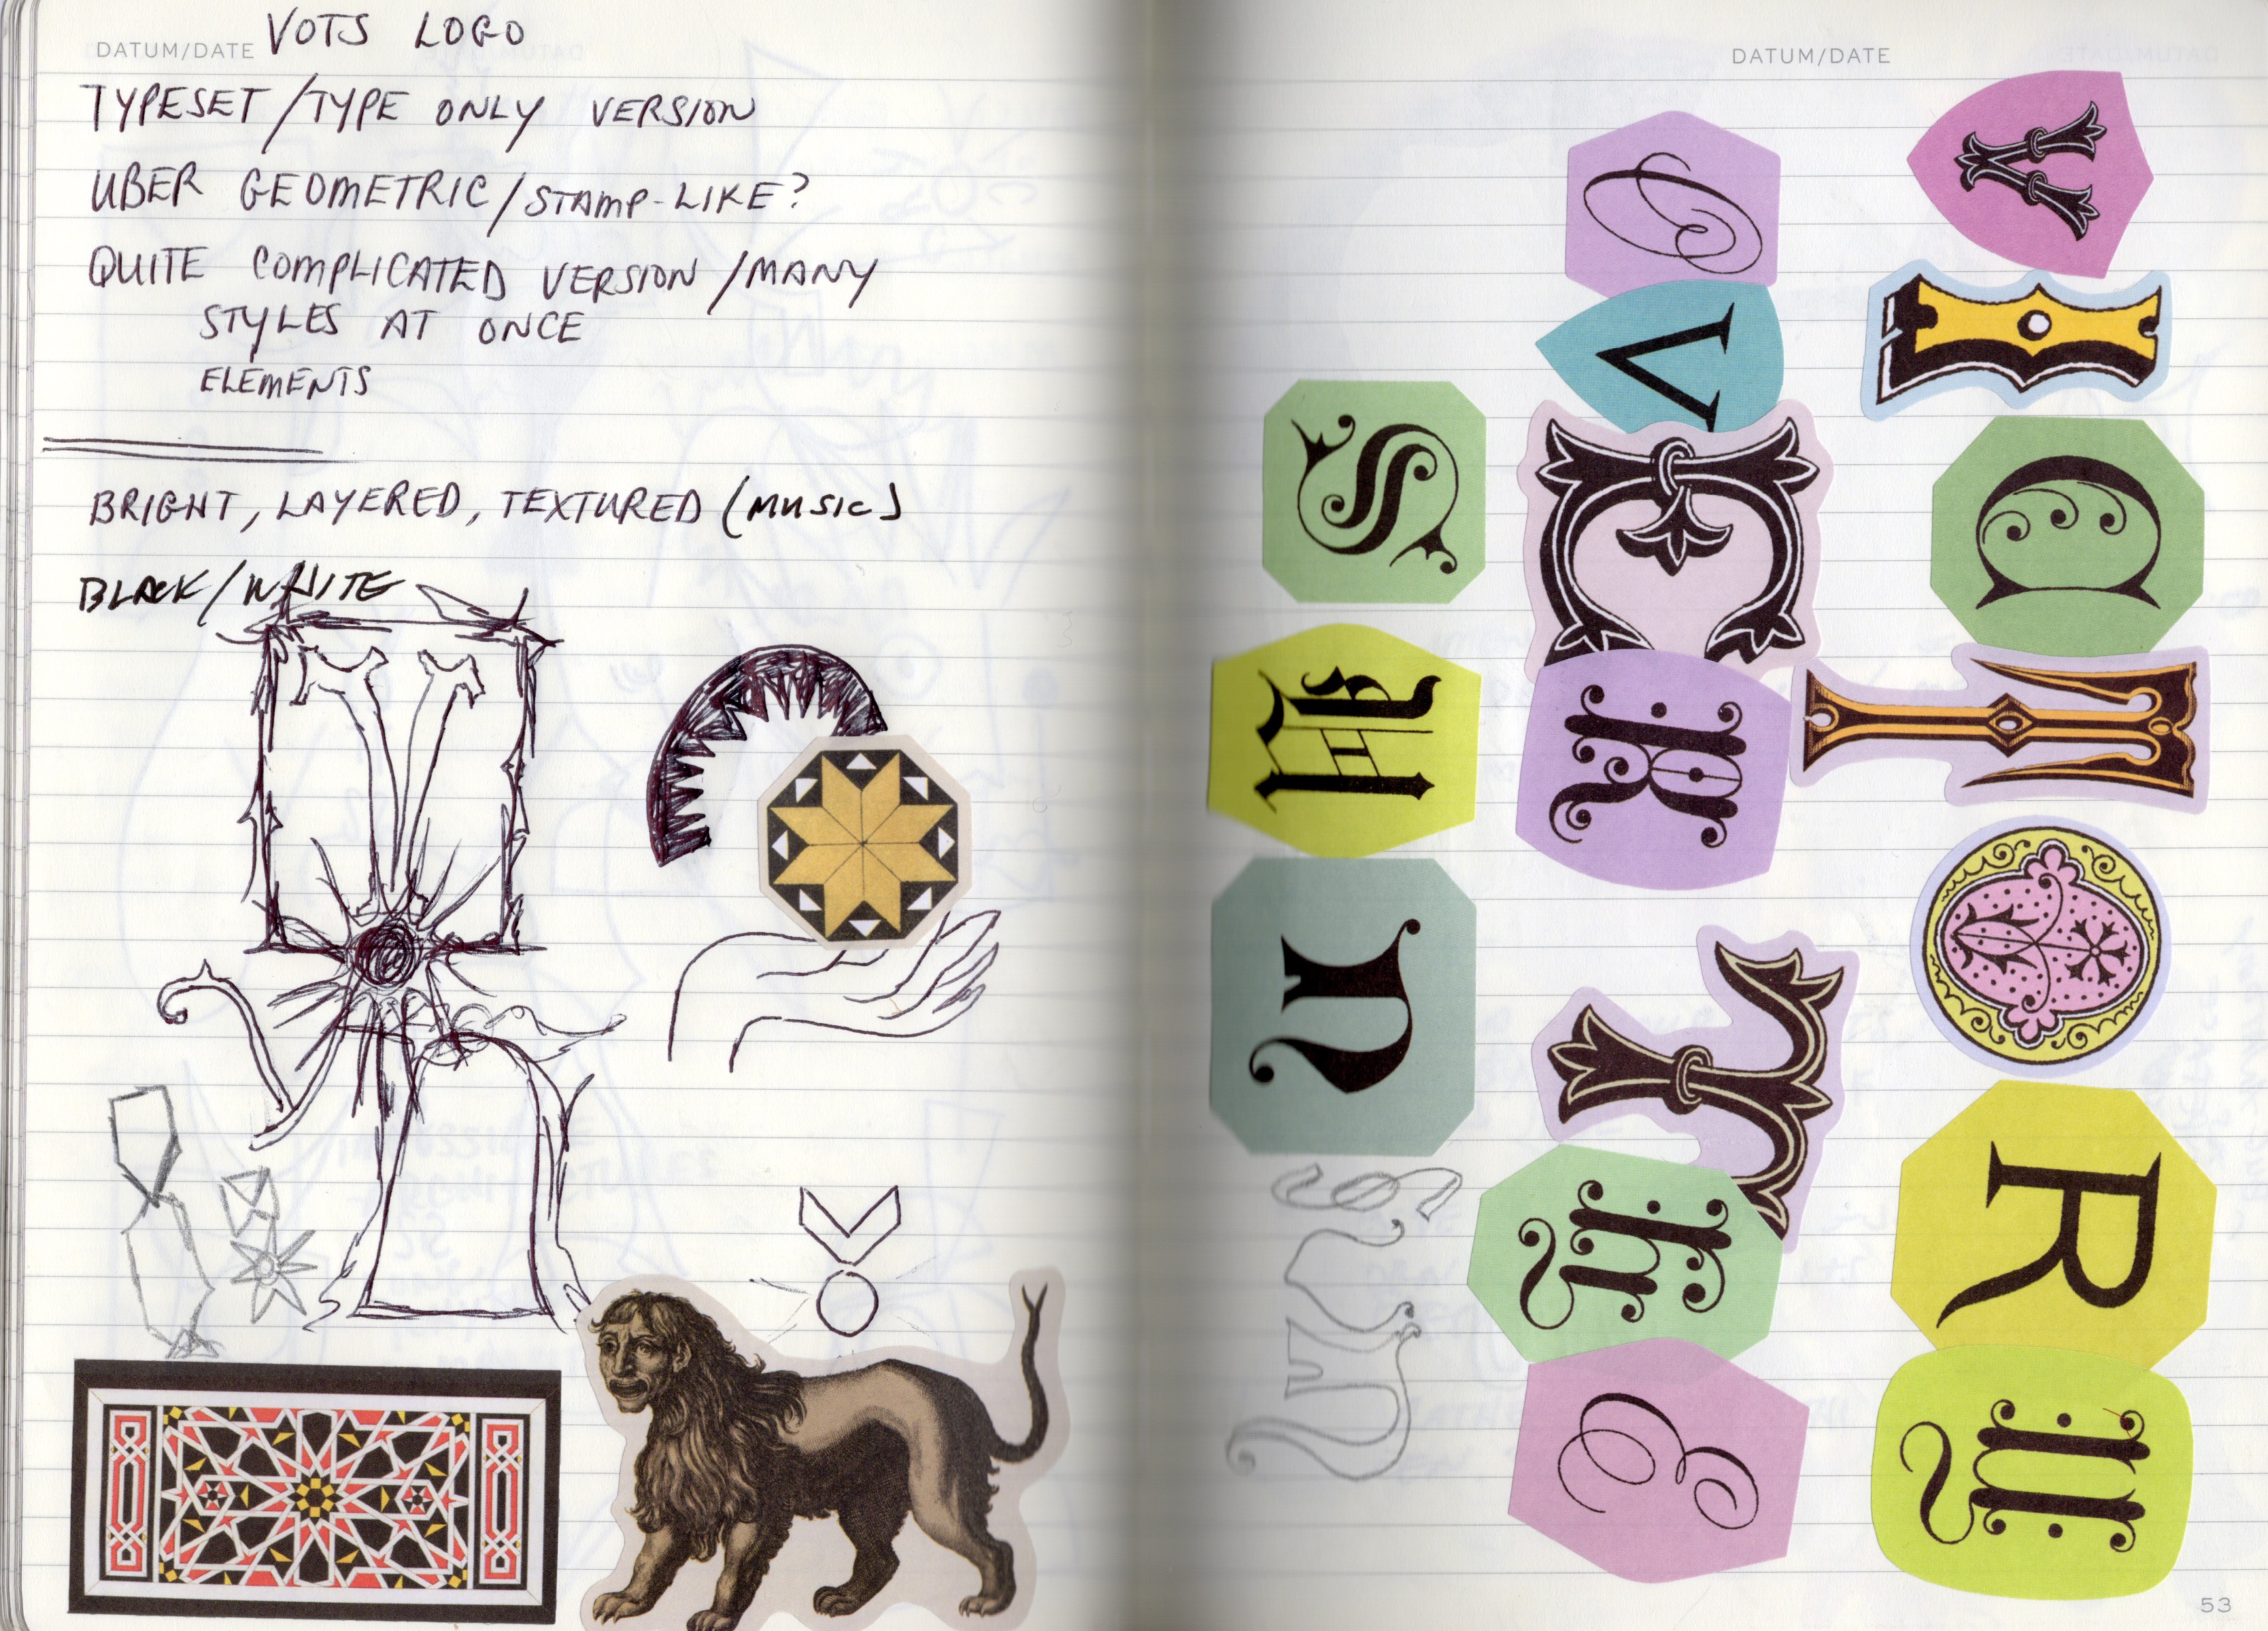 VOTS LOGO
DATUM/DATE
TYPESET/TYPE ONLY VERSION
UBER GEOMETRIC/STAMP-LIKE?
QUITE COMPLICATED VERSION/MANY
STYLES AT ONCE
ELEMENTS
BRIGHT, LAYERED, TEXTURED (MUSIC)
BLACK/WHITE
DATUM/DATE
VICTORY
OVER THE
SUN
53